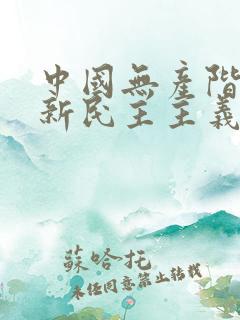 中國無產階
新民主主義
蘇哈托
未經同意禁止轉載